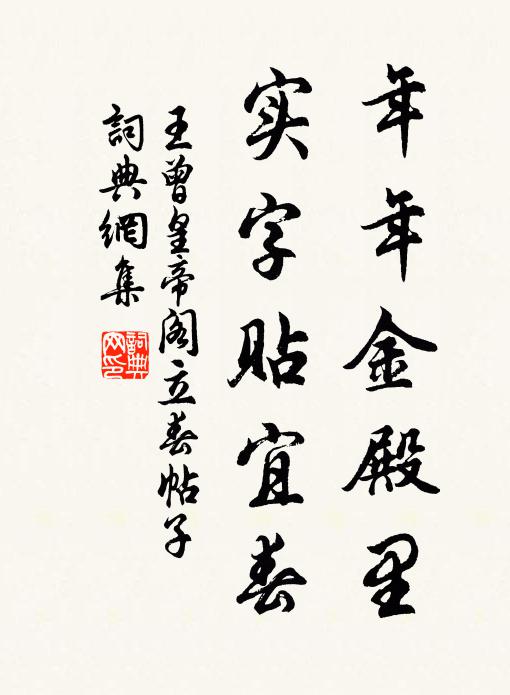 年年金殿里
实字贴宜春
王曾皇帝阁立春帖子
詞典網集
詞典網印